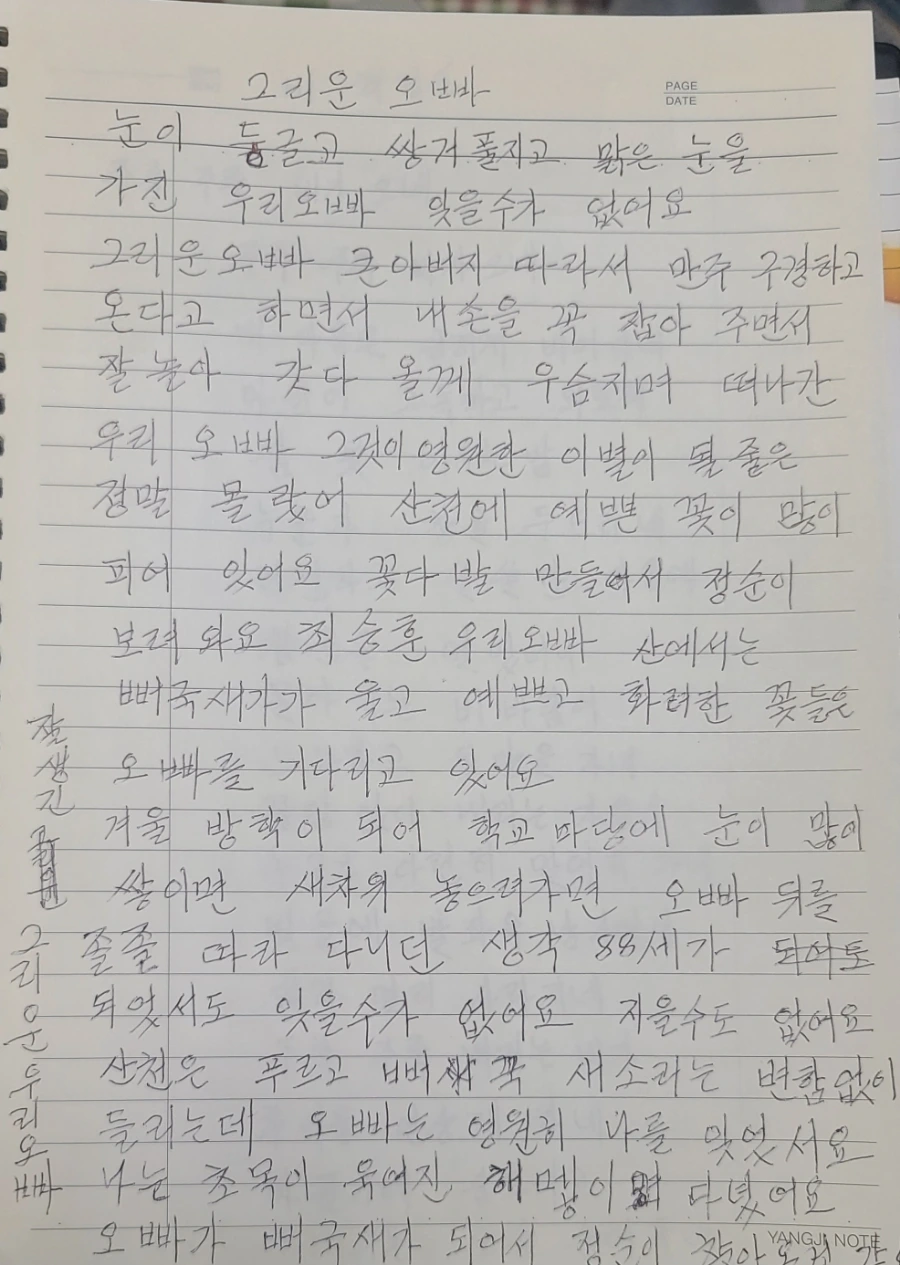 그리운 오빠
PAGE
DATE
눈이 둥글고 쌍거풀지고 맑은 눈을
가진 우리오빠 잊을수가 없어요
그리운오빠 큰아버지 따라서 만주 구경하고
온다고 하면서 내손을 꼭 잡아 주면서
잘놀아 갓다 올께 우슴지며 떠나간
우리 오빠 그것이영원한 이별이 될줄은
정말 몰랐어 산천에 예쁜 꽃이 많이
피어 있어요 꽃다발 만들어서 정순이
보려 와요 최승훈 우리오빠 산에서는
뻐국새가가 울고 예쁘고 화려한 꽃들은
오빠를 기다리고 있어요
겨울 방학이 되어 학교마당에 눈이 많이
쌓이면 새차위 놓으려가면 오빠 뒤를
졸졸 따라 다니던 생각 88세가 되어도
되엇서도 잊을수가 없어요 지을수도 없어요
산천은 푸르고 뻐꾹 새소리는 변함없이
들리는데 오빠는 영원히 나를 잊엇서요
나는 초목이 욱여진 해멯이며 다녔어요
오빠가 뻐국새가 되어서 정순이
YANGJI NOTE
잘생긴 그리운우리오빠